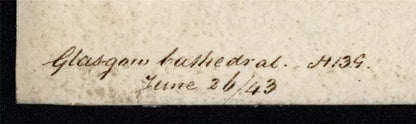 Glasgow Cathedral. H.B.G.
June 26/43